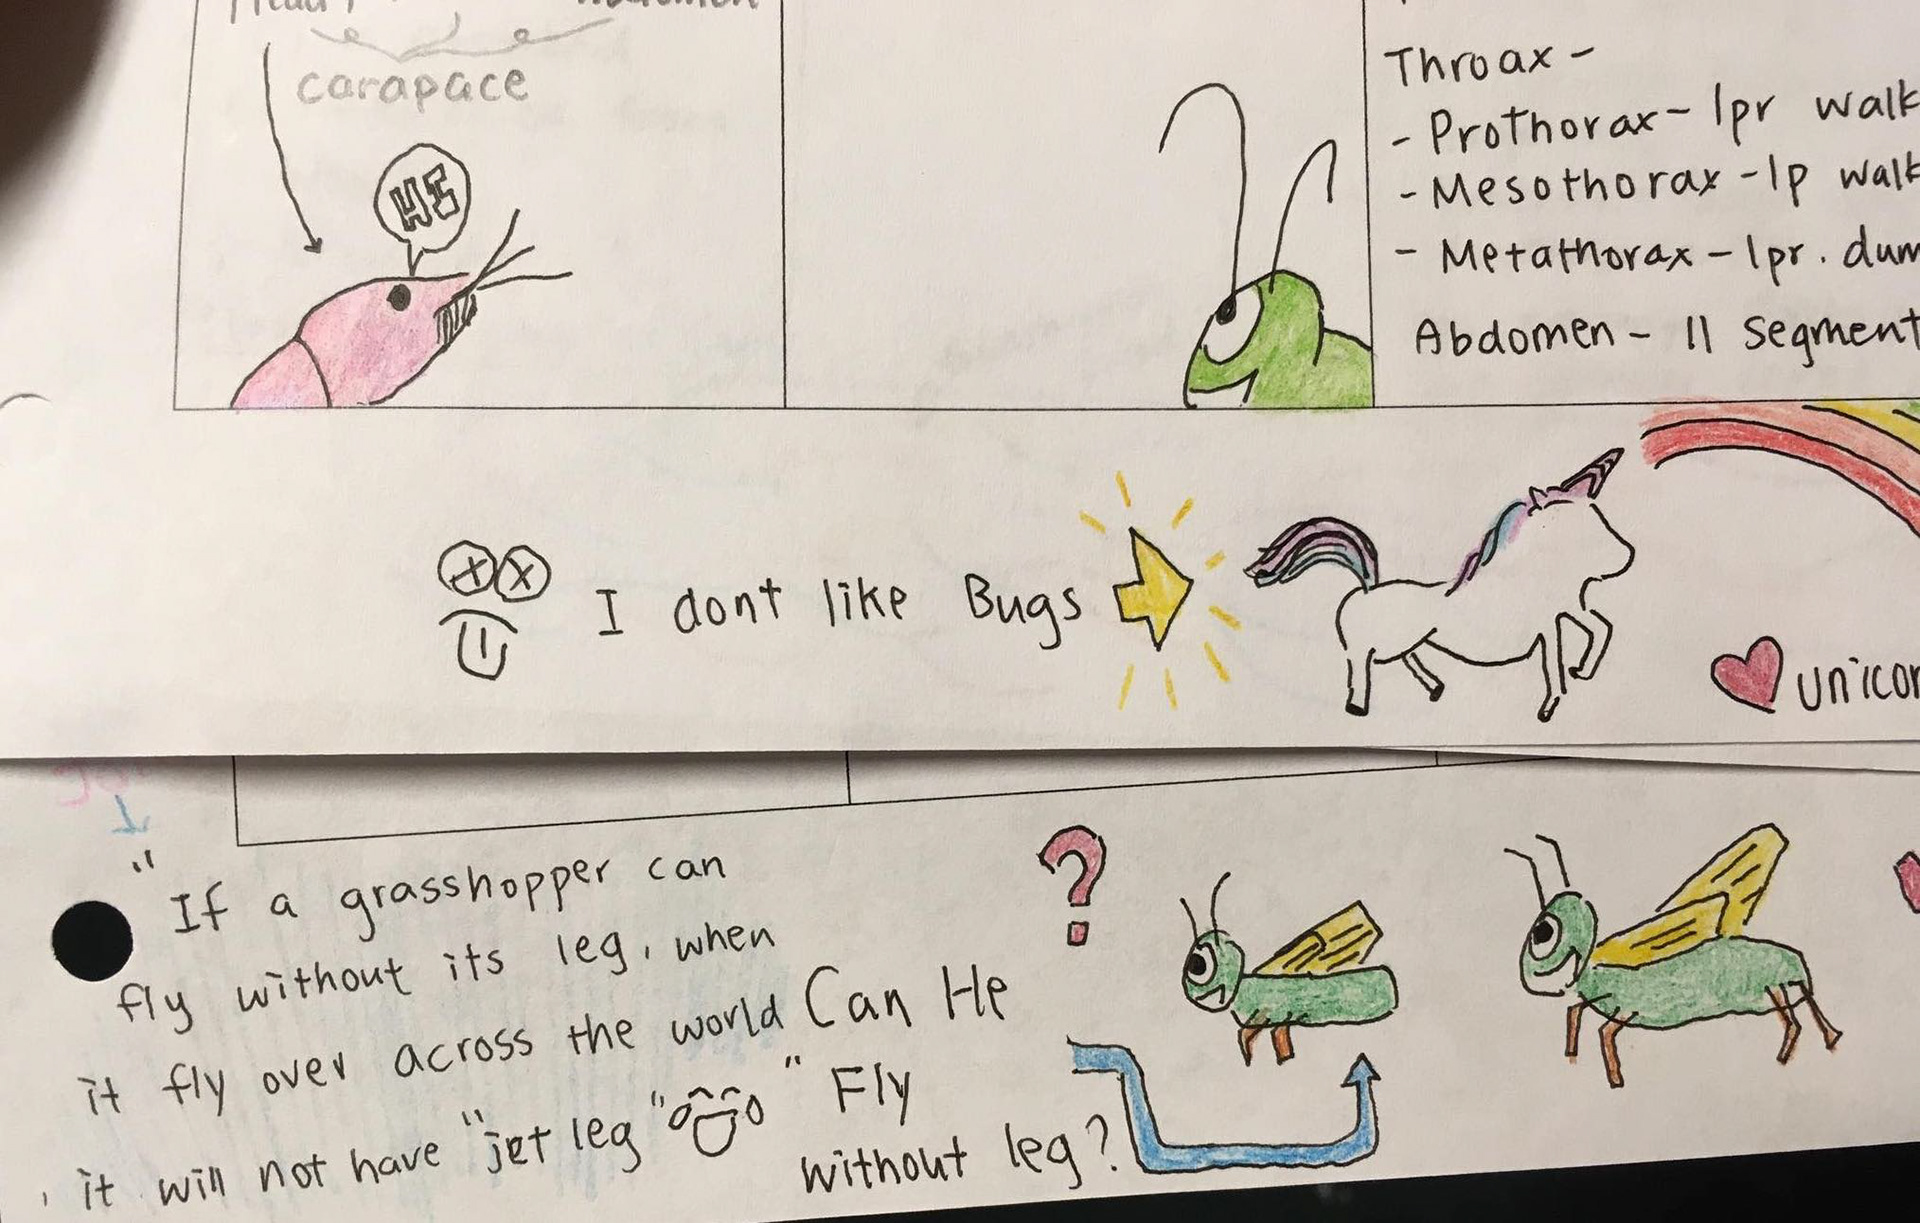 carapace
HE
Throax -
- Prothorax - 1pr walk
- Mesothorax - 1p walk
- Metathorax - 1pr. dum
Abdomen - 11 segment
I dont like Bugs
unicor
"If a grasshopper can
fly without its leg, when
it fly over across the world
it will not have "jet leg" "
Can He
Fly
without leg?
?